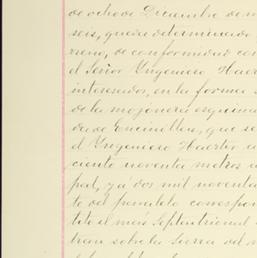 de ocho de Diciembre de
seis, queda determinado
rreno, de conformidad con
el Señor Yngeniero Haerter
interesados, en la forma s
de la mojonera esquina
da de Encinillas, que se
el Yngeniero Haerter
ciento noventa metros
pal, y a dos mil noventa
to del paralelo correspon
tito el mas Septentrional
tran sobre la Sierra del